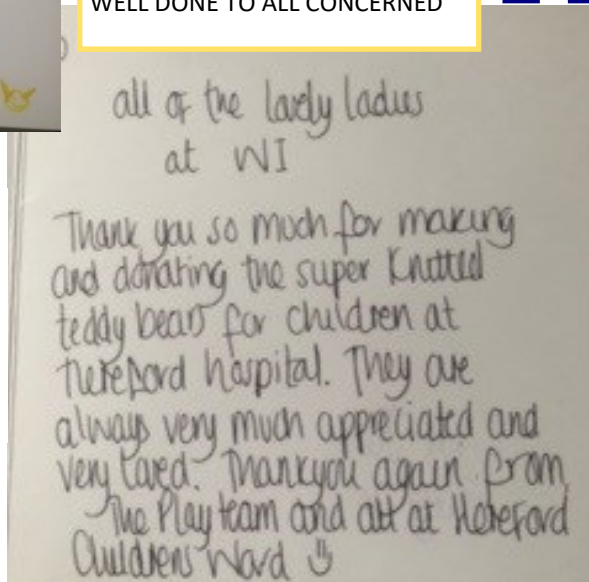 WELL DONE TO ALL CONCERNED
all of the lovely ladies
at WI
Thank you so much for making
and donating the super Knitted
teddy bears for children at
Hereford hospital. They are
always very much appreciated and
very loved. Thankyou again from
The Play team and all at Hereford
Childrens Ward